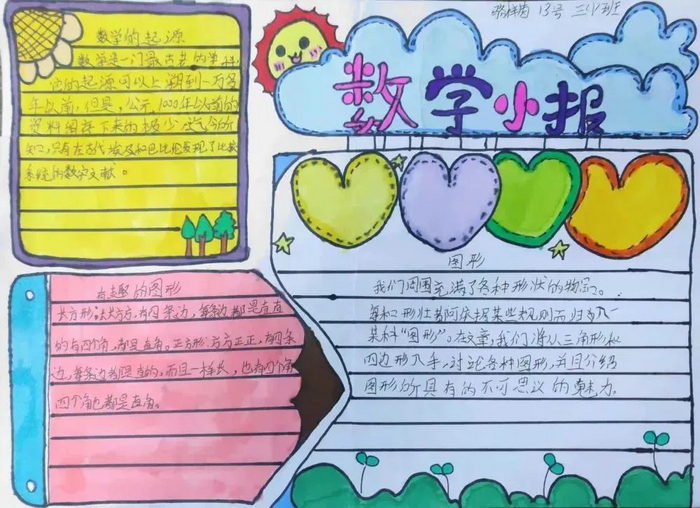 13号 三(1)班
数学小报
数学的起源
数学是一门最古老的学科,
它的起源可以上溯到一万多
年以前,但是,公元1000年以前的
资料留存下来的极少,迄今所
知,只有在古代埃及和巴比伦发现了比较
系统的数学文献。
有趣的图形
长方形:长方方,有四条边,每条边都是直直
的有四个角,都是直角。正方形:方方正正,有四条
边,每条边都是直的,而且一样长,也有四个角
四个角也都是直角。
图形
我们周围充满了各种形状的物品。
每种形状都可依据某些规则而归为入
某种"图形"。在文章,我们将从三角形和
四边形入手,讨论各种图形,并且介绍
图形所具有的不可思议的魅力。